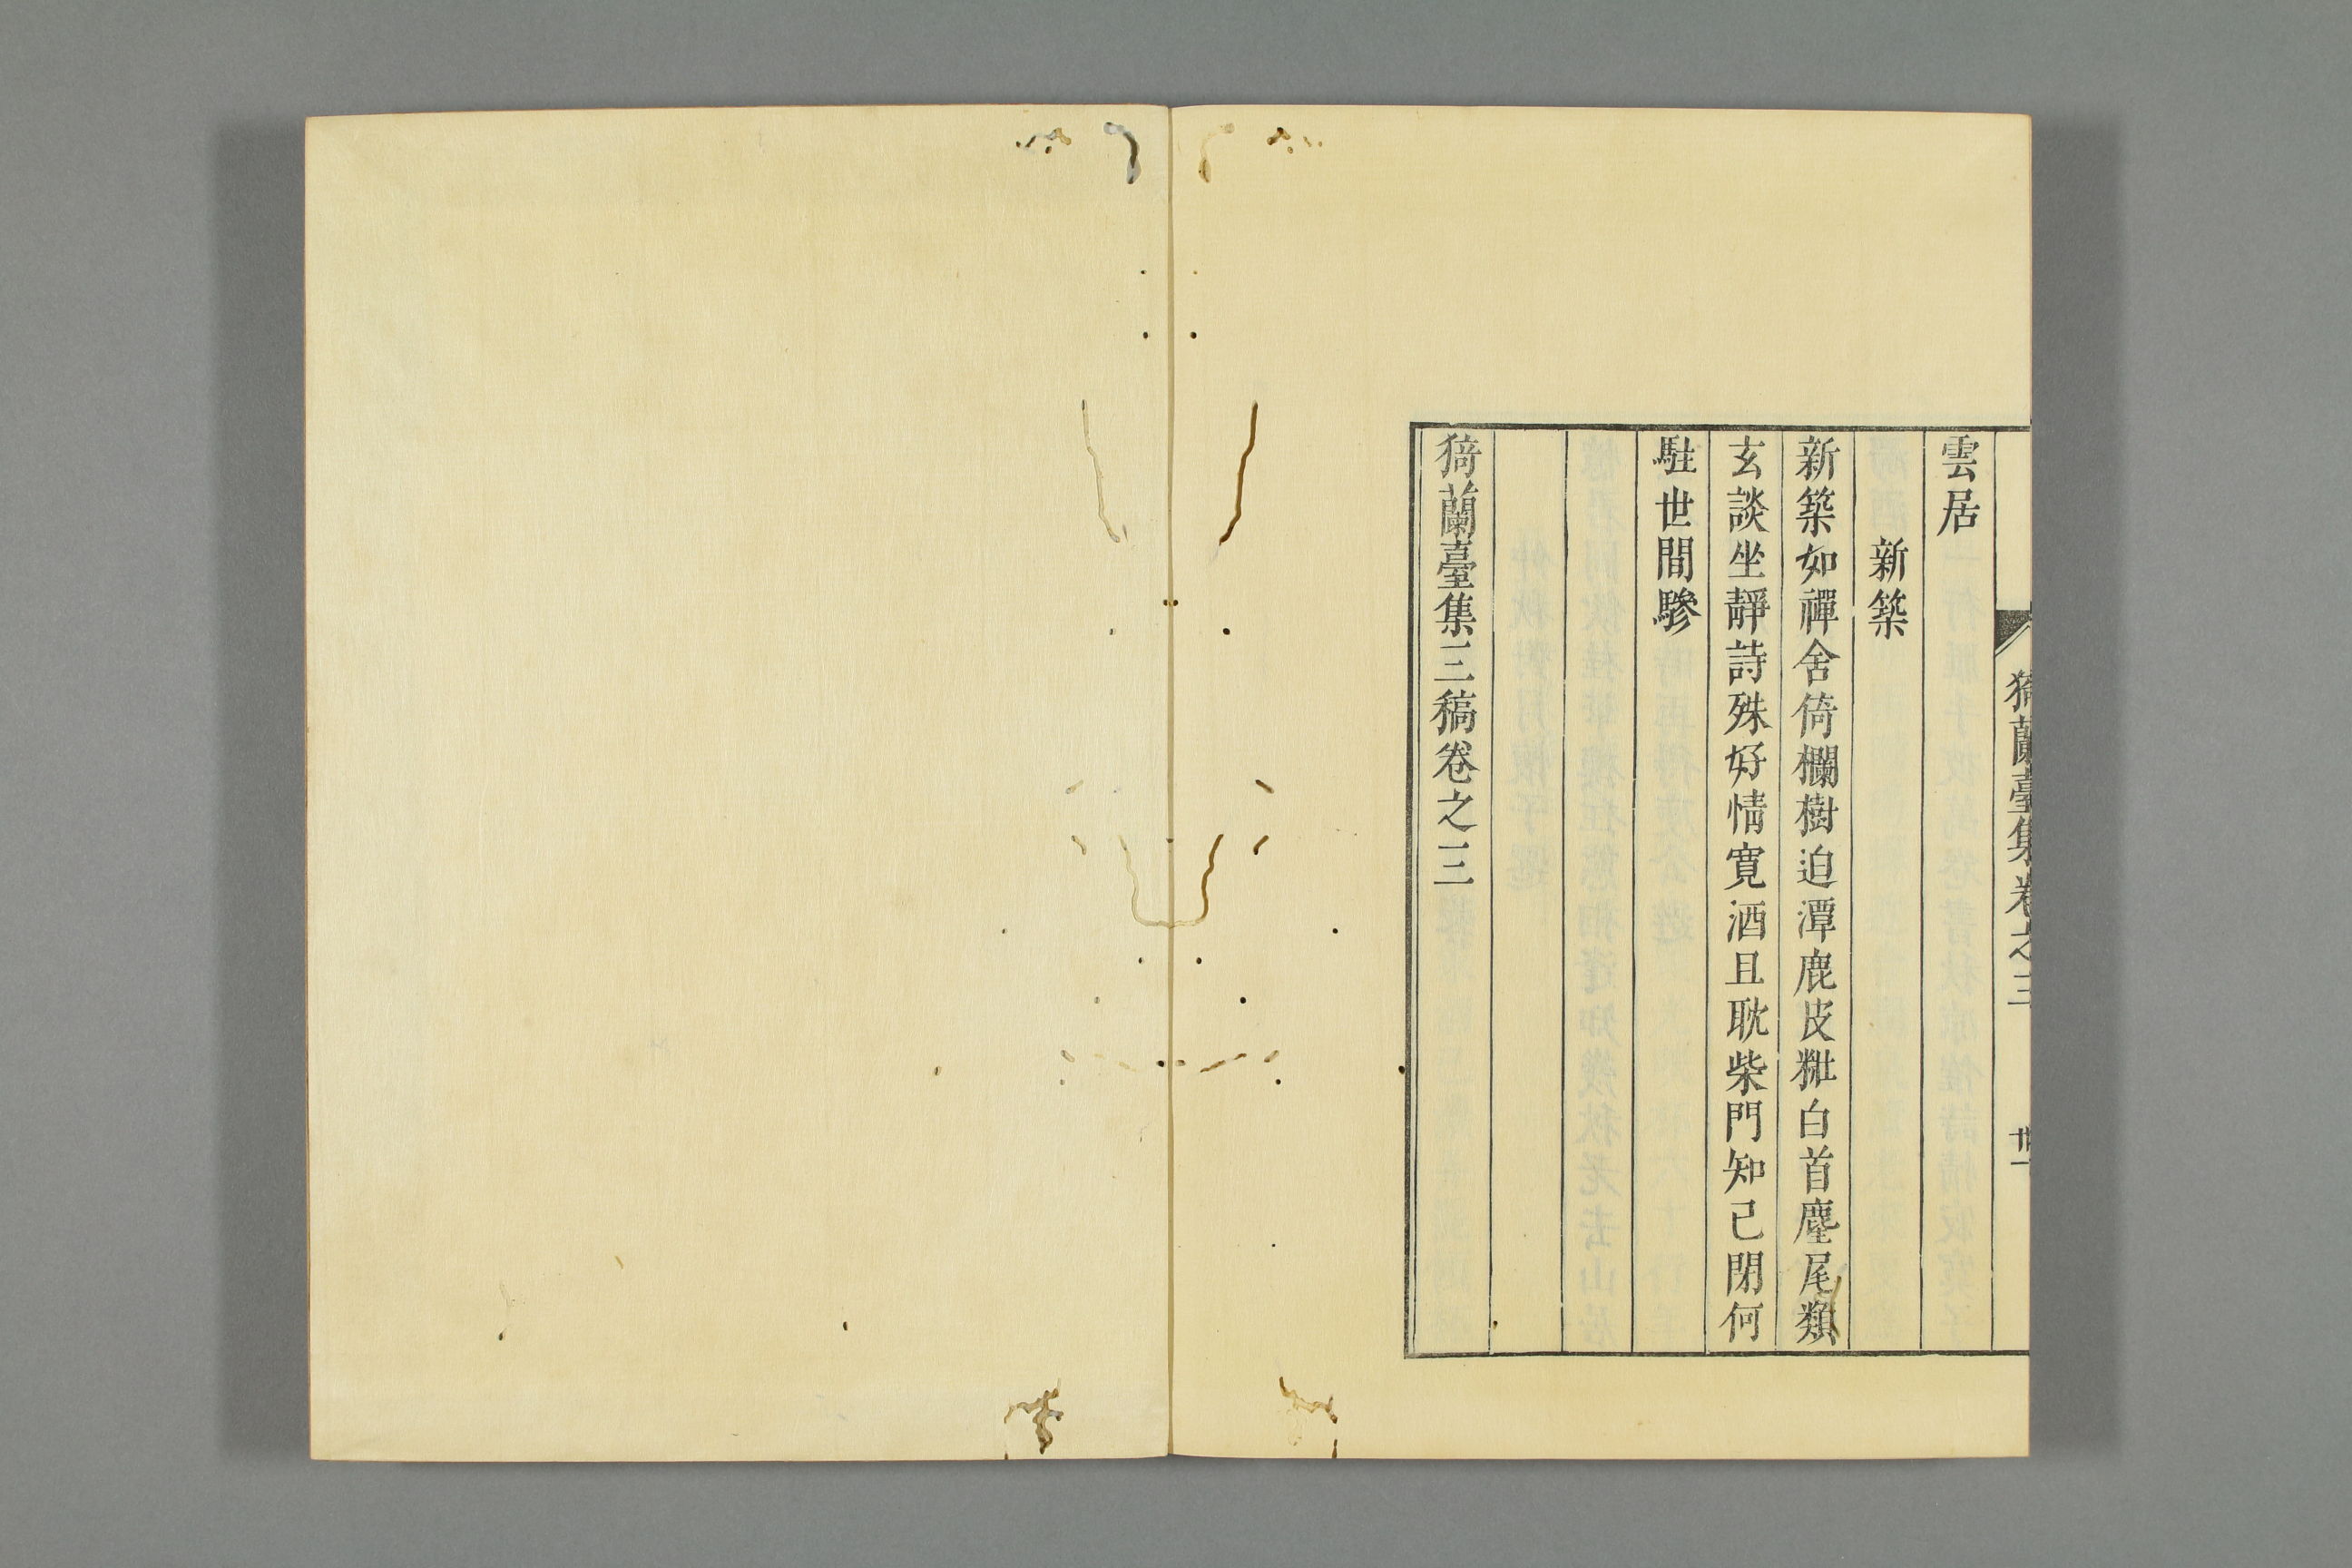 猗蘭臺集卷之三
卅一
雲居
新築
新築如禪舍倚欄樹迫潭鹿皮粃白首麈尾纇
玄談坐靜詩殊好情寛酒且耽柴門知己閉何
駐世間驂
猗蘭臺集三稿卷之三